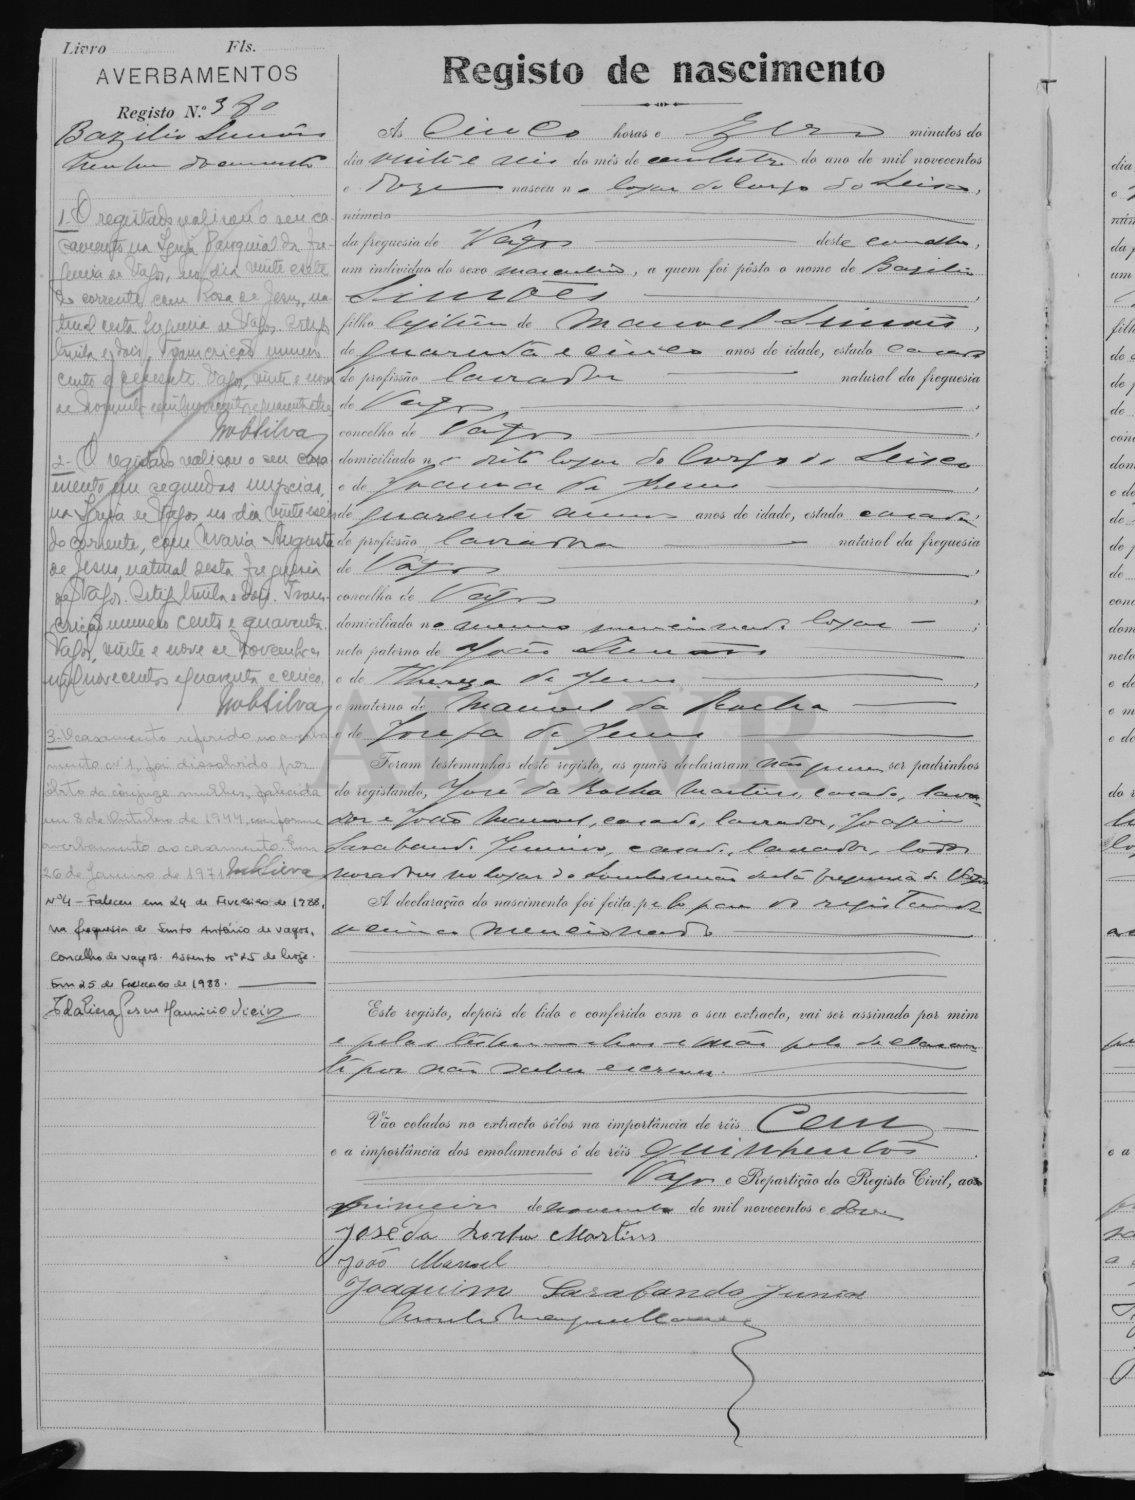 Livro Fls.
AVERBAMENTOS
Registo N.º 380
Bazilio Simões
1.- O registado realisou o seu ca-
samento na Igreja Paroquial da fre-
guesia de Vagos, no dia vinte e sete
do corrente, com Rosa de Jesus, na-
tural desta freguesia de Vagos.
Transcrição numero
cento e Vagos, vinte e nove
de
MobSilva
2.- O registado realisou o seu casa-
mento em segundas nupcias,
na Igreja de Vagos no dia vinte e seis
do corrente, com Maria Augusta
de Jesus, natural desta freguesia
de Vagos. Trans-
crição numero cento e quarenta.
Vagos, vinte e nove de Novembro de
mil novecentos e quarenta e cinco.
MobSilva
3.- O casamento referido no averba-
mento nº 1, foi dissolvido por
óbito da cônjuge mulher, falecida
em 8 de Outubro de 1944, conforme
averbamento ao casamento. Em
26 de Janeiro de 1971
Nº4 - Faleceu em 24 de Fevereiro de 1988,
na freguesia de Santo António de Vagos,
concelho de Vagos. Assento nº 25 de hoje.
Em 25 de Fevereiro de 1988.
Registo de nascimento
Ás Cinco horas e Zero minutos do
dia vinte e seis do mês de outubro do ano de mil novecentos
e doze nasceu no logar do Corgo do Seixo,
número
da freguesia de Vagos deste concelho,
um indivíduo do sexo masculino, a quem foi pôsto o nome de Bazilio
Simões
filho legitimo de Manuel Simões,
de quarenta e cinco anos de idade, estado casado
de profissão lavrador natural da freguesia
de Vagos
concelho de Vagos
domiciliado no dito logar do Corgo do Seixo
e de Joanna de Jesus
de quarenta annos anos de idade, estado casada
de profissão lavradora natural da freguesia
de Vagos
concelho de Vagos
domiciliado no mesmo mencionado logar;
neto paterno de João Simões
e de Thereza de Jesus
e materno de Manuel da Rocha
e de Josefa de Jesus
Foram testemunhas deste registo, as quais declararam não querer ser padrinhos
do registando, José da Rocha Martins, casado, lavra-
dor e João Manuel, casado, lavrador, Joaquim
Sarabando Junior, casado, lavrador, todos
moradores no logar do desta freguesia de Vagos
A declaração do nascimento foi feita pelo pae do registando
acima mencionado
Este registo, depois de lido e conferido com o seu extracto, vai ser assinado por mim
e pelas testemunhas e não pelo declaran-
te por não saber escrever.
Vão colados no extracto sêlos na importância de réis Cem
e a importância dos emolumentos é de réis quinhentos
Vagos e Repartição do Registo Civil, aos
primeiro de novembro de mil novecentos e doze
José da Rocha Martins
João Manuel
Joaquim Sarabando Junior
ADAVR